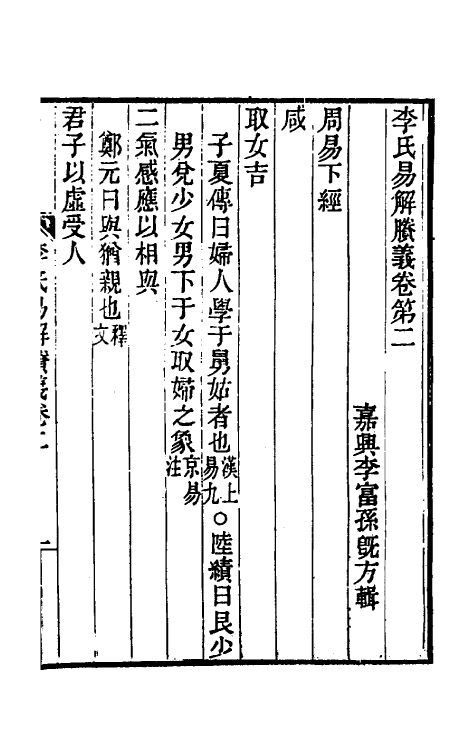 李氏易解賸義卷第二
嘉興李富孫旣方輯
周易下經
咸
取女吉
子夏傳曰婦人學于舅姑者也漢上易九○陸績曰艮少
男兌少女男下于女取婦之象京易注
二氣感應以相與
鄭元曰與猶親也釋文
君子以虛受人
李氏易解賸義卷二
一